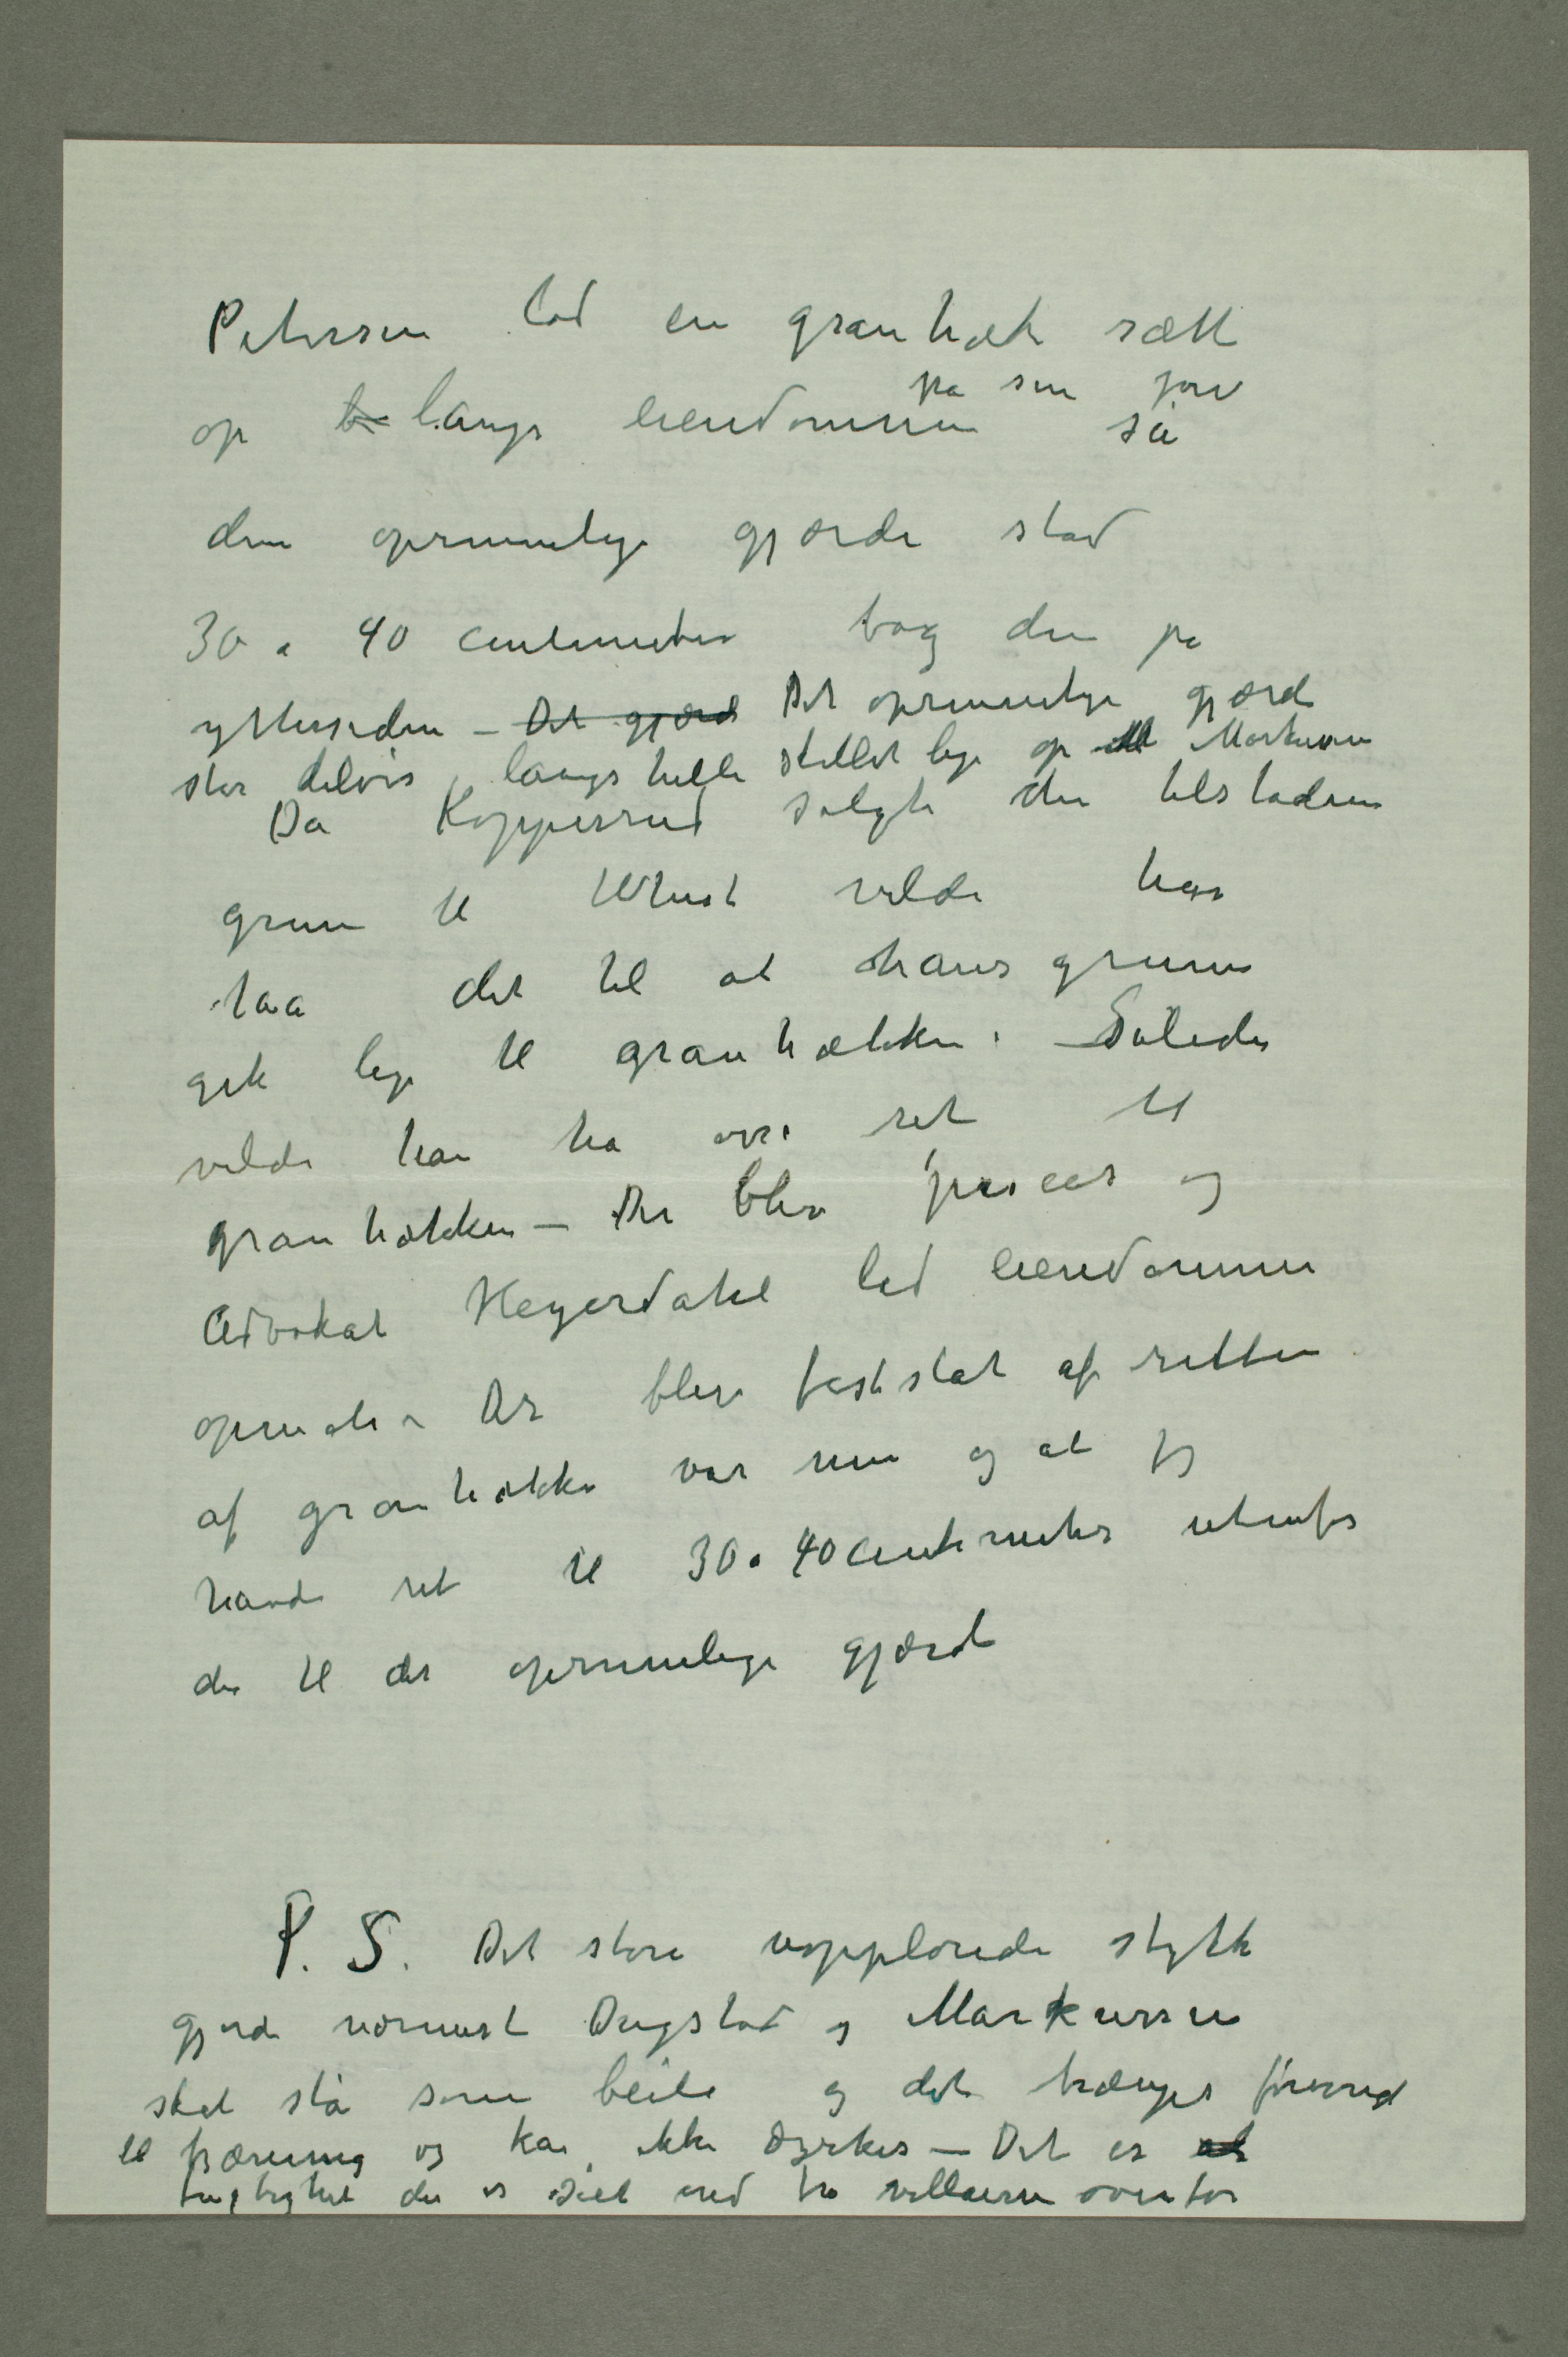 Petersen lod en granhæk sætte
op b langs eiendommen på sin jor så
den oprinnelige gjærde stod
30 a 40 centimeter bag den på
yttersiden – Det gjærde Det oprinnelige gjærde
står delvis langs hele skillet lige op til Markussen
Da Kopperrud solgte den tilstødene
grunn til Whist vilde han
taa det til at hans grunn
gik lige til granhækken – Således
vilde han ha øvre ret til
granhækken – Der blev proces og
Advokat Heyerdahl lod eiendommen
opmåle – Det blev fastslåt af retten
af granhækken var min og at jeg
havde ret til 30 a 40 centimeter utenfor
der til det oprinnelige gjærde
P. S. Det store uoppløiede stykke
gjorde nærmest Dugstad og Markussen
skal stå som beite og det trænges forresten
til fræning og kan ikke dyrkes – Det er at
fugtighet der er siet ned fra villaerne ovenfor